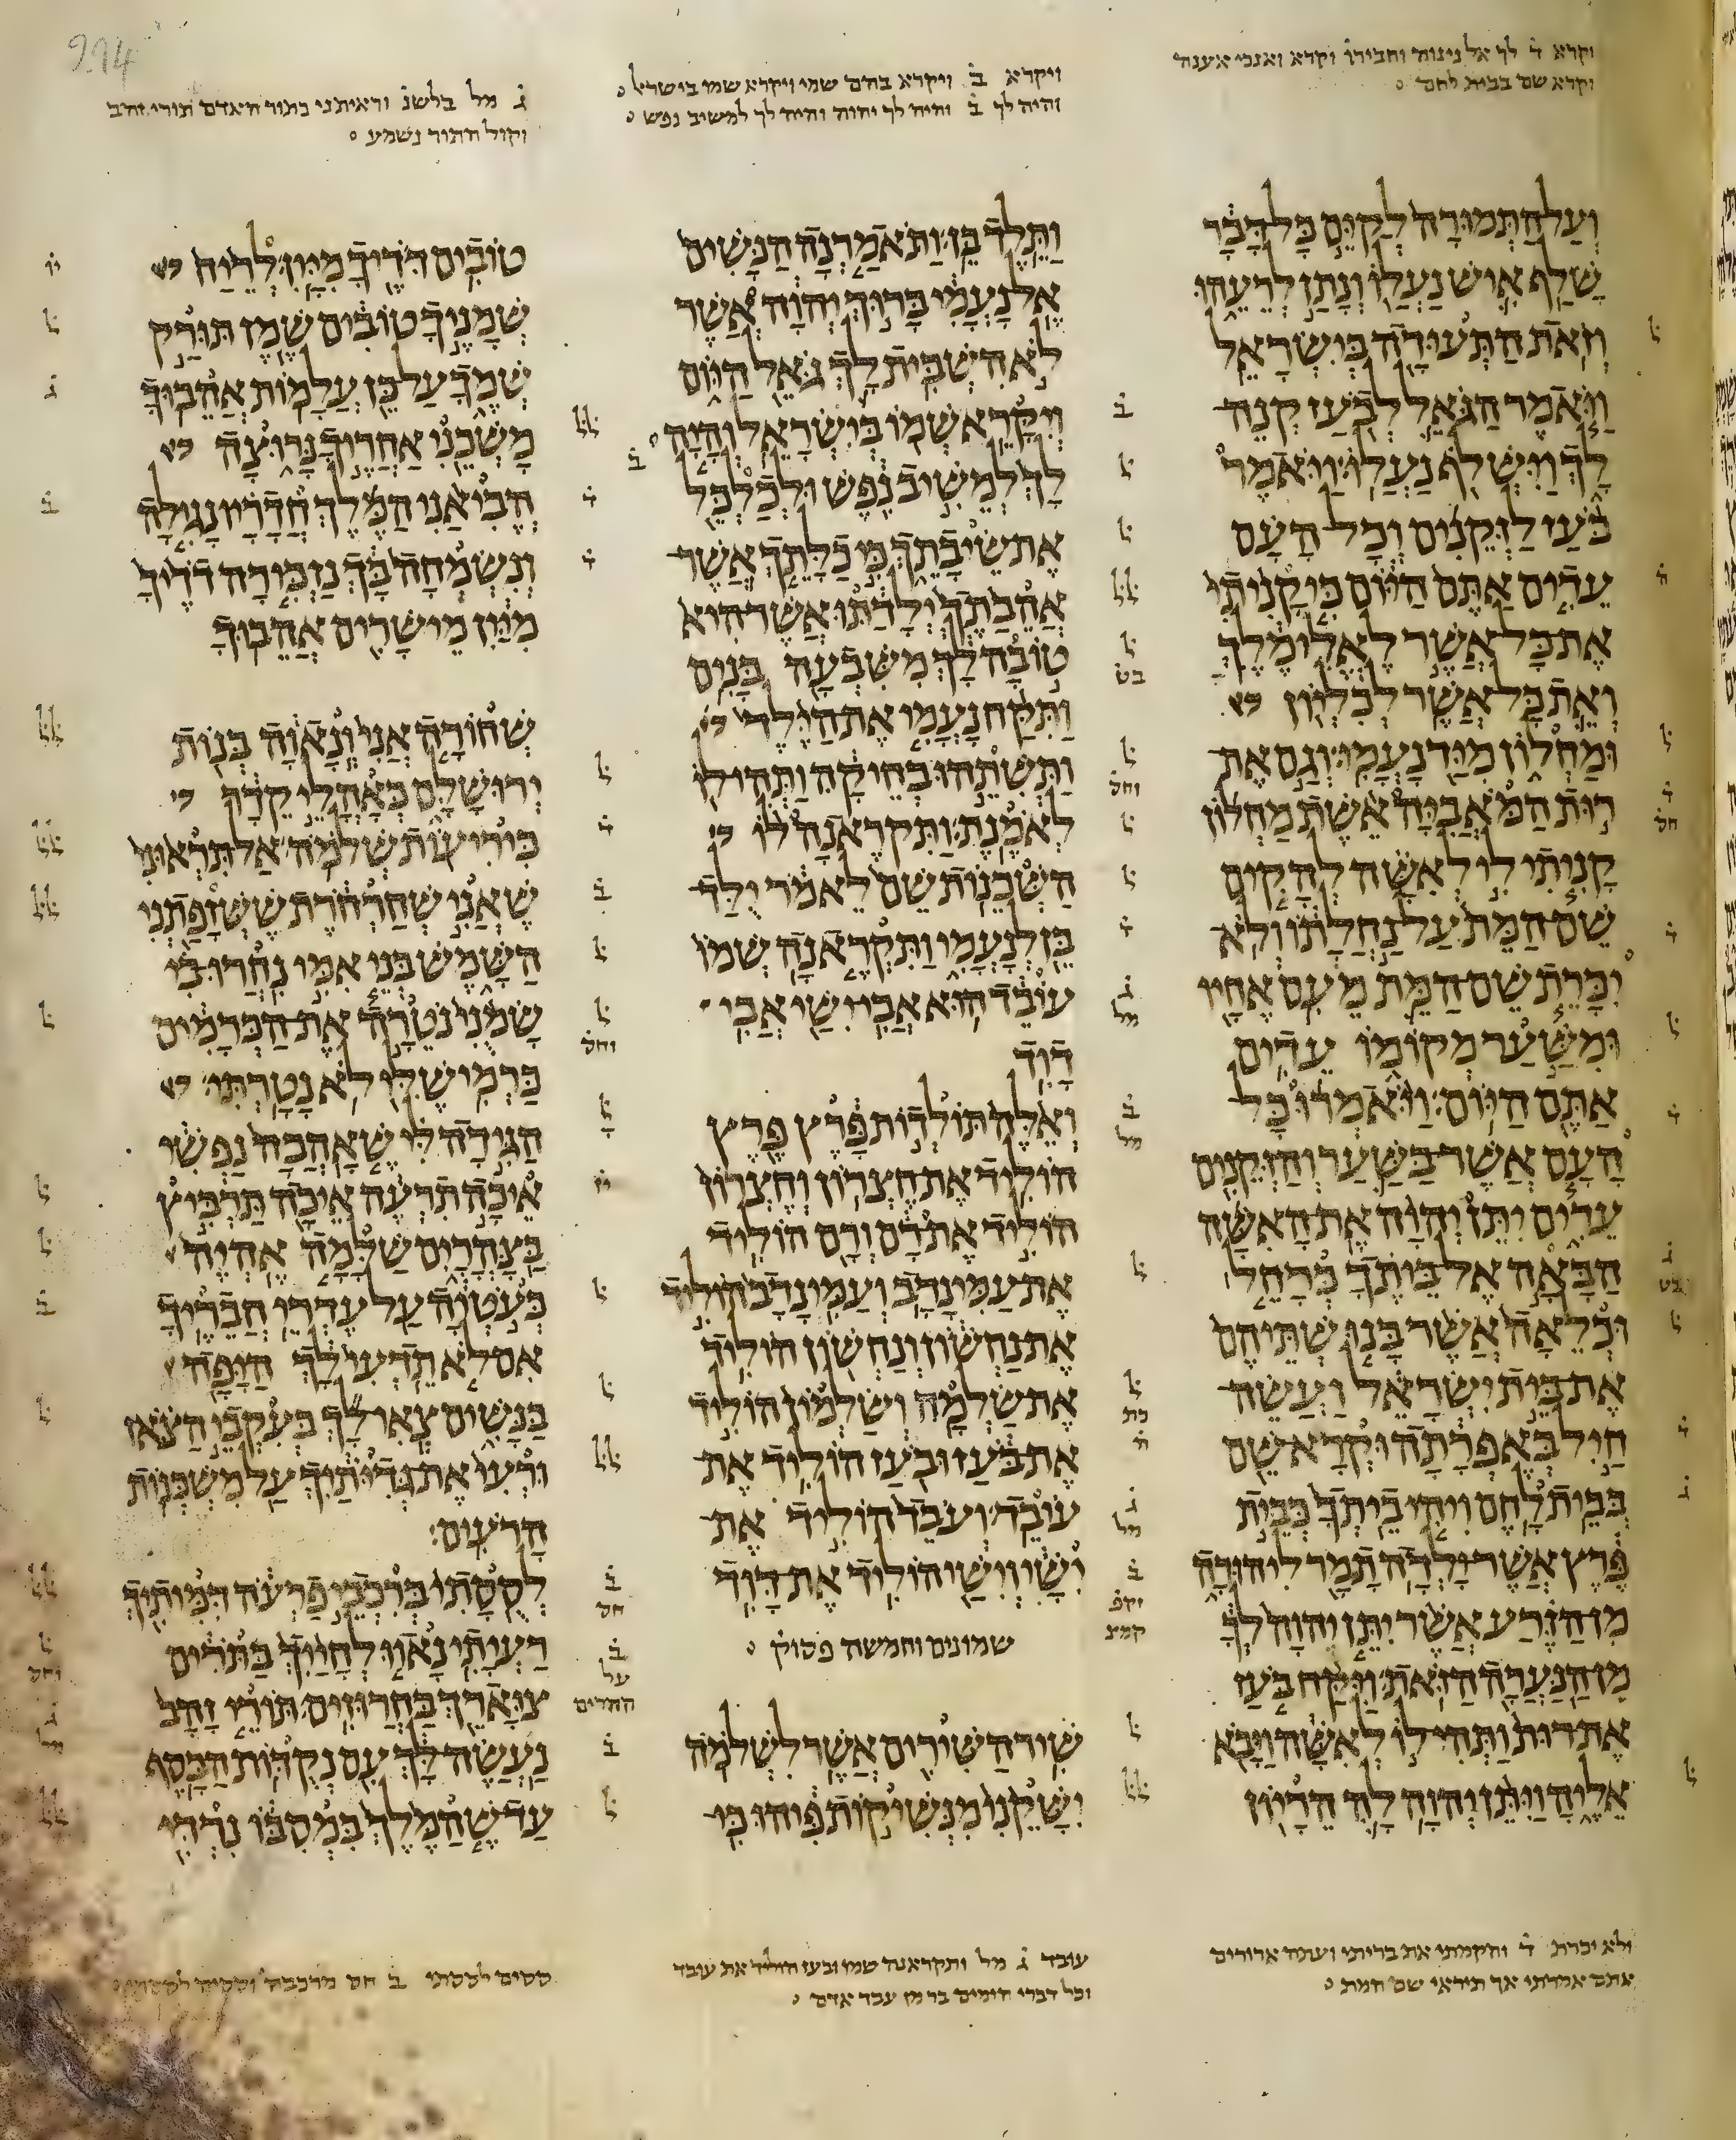 וקרא ד לך אל נינוה וחבירו וקרא ואנכי אעננה
וקרא שם בבית לחם
ויקרא ב ויקרא בהם שמי ויקרא שמו בישראל
והיה לך ב והיה לך יהוה והיה לך למשיב נפש
ג מל בלשנ וראיתני כתור האדם תורי זהב
וקול התור נשמע
ועל התמורה לקים כל דבר
שלף איש נעלו ונתן לרעהו
וזאת התעודה בישראל
ויאמר הגאל לבעז קנה
לך וישלף נעלו ויאמר
בעז לזקנים וכל העם
עדים אתם היום כי קניתי
את כל אשר לאלימלך
ואת כל אשר לכליון
ומחלון מיד נעמי וגם את
רות המאביה אשת מחלון
קניתי לי לאשה להקים
שם המת על נחלתו ולא
יכרת שם המת מעם אחיו
ומשער מקומו עדים
אתם היום ויאמרו כל
העם אשר בשער והזקנים
עדים יתן יהוה את האשה
הבאה אל ביתך כרחל
וכלאה אשר בנו שתיהם
את בית ישראל ועשה
חיל באפרתה וקרא שם
בבית לחם ויהי ביתך כבית
פרץ אשר ילדה תמר ליהודה
מן הזרע אשר יתן יהוה לך
מן הנערה הזאת ויקח בעז
את רות ותהי לו לאשה ויבא
אליה ויתן יהוה לה הריון
ותלד בן ותאמרנה הנשים
אל נעמי ברוך יהוה אשר
לא השבית לך גאל היום
ויקרא שמו בישראל והיה
לך למשיב נפש ולכלכל
את שיבתך כי כלתך אשר
אהבתך ילדתו אשר היא
טובה לך משבעה בנים
ותקח נעמי את הילד
ותשתהו בחיקה ותהי לו
לאמנת ותקראנה לו
השכנות שם לאמר ילד
בן לנעמי ותקראנה שמו
עובד הוא אבי ישי אבי
דוד
ואלה תולדות פרץ פרץ
הוליד את חצרון וחצרון
הוליד את רם ורם הוליד
את עמינדב ועמינדב הוליד
את נחשון ונחשון הוליד
את שלמה ושלמון הוליד
את בעז ובעז הוליד את
עובד ועבד הוליד את
ישי וישי הוליד את דוד
שמונים וחמשה פסוק
שיר השירים אשר לשלמה
ישקני מנשיקות פיהו כי
טובים דדיך מיין לריח
שמניך טובים שמן תורק
שמך על כן עלמות אהבוך
משכני אחריך נרוצה
הביאני המלך חדריו נגילה
ונשמחה בך נזכירה דדיך
מיין מישרים אהבוך
שחורה אני ונאוה בנות
ירושלם כאהלי קדר
כיריעות שלמה אל תראוני
שאני שחרחרת ששזפתני
השמש בני אמי נחרו בי
שמני נטרה את הכרמים
כרמי שלי לא נטרתי
הגידה לי שאהבה נפשי
איכה תרעה איכה תרביץ
בצהרים שלמה אהיה
כעטיה על עדרי חבריך
אם לא תדעי לך היפה
בנשים צאי לך בעקבי הצאן
ורעי את גדיתיך על משכנות
הרעים
לססתי ברכבי פרעה דמיתיך
רעיתי נאוו לחייך בתרים
צוארך בחרוזים תורי זהב
נעשה לך עם נקדות הכסף
עד שהמלך במסבו נרדי
ולא יכרת ד והקמתי את בריתי ועתה ארורים
אתם
עובד ג מל ותקראנה שמו ובעז הוליד את עובד
וכל דברי הימים בר מן עבד אדם
ססים לססתי ב חס מרכבה